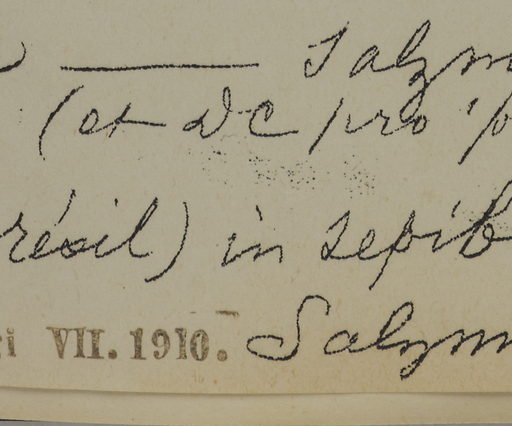 Salzm
(et DC pro p
résil) in sepib
i VII. 1910. Salzm